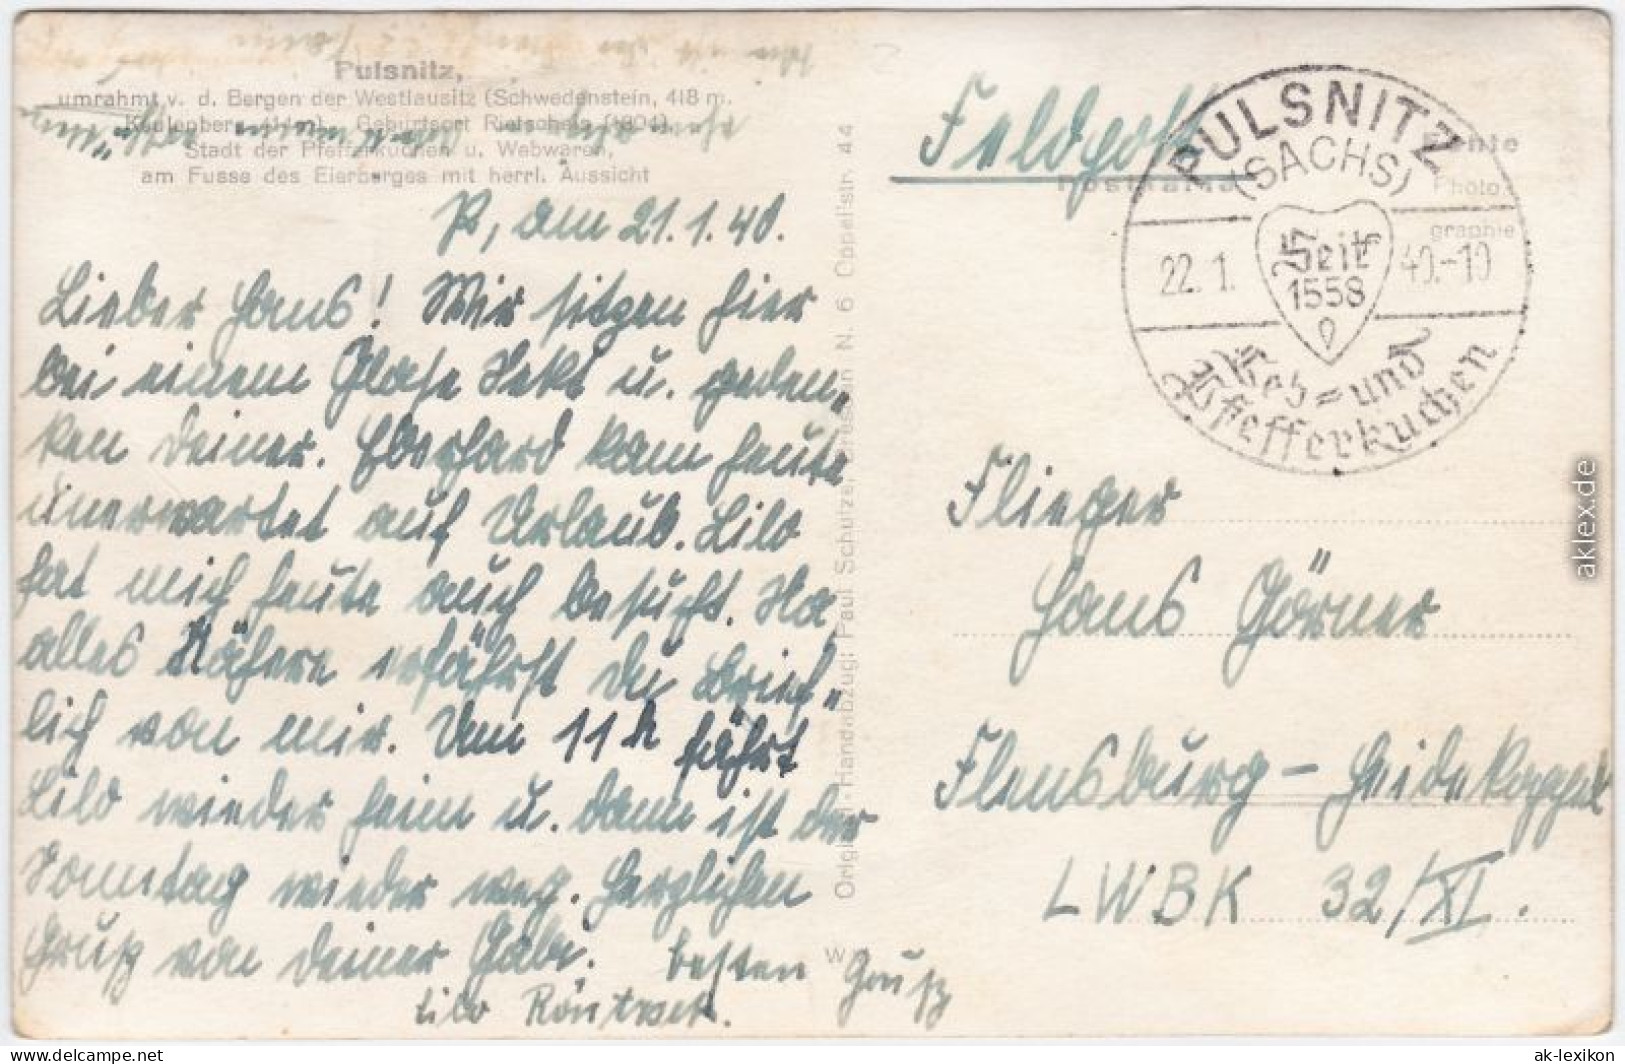 Pulsnitz,
umrahmt v. d. Bergen der Westlausitz (Schwedenstein, 418 m,
Geburtsort Rietschels (1804)
Stadt der Pfefferkuchen u. Webwaren,
am Fusse des Eierberges mit herrl. Aussicht
P, am 21.1.40.
Lieber Hans! Wir sitzen hier
bei einem Glase Sekt u. geden-
ken deiner. Eberhard kam heute
unerwartet auf Urlaub. Lilo
hat mich heute auch besucht. Na
alles Nähere erfährst du brief-
lich von mir. Um 11 h fährt
Lilo wieder heim u. dann ist der
Sonntag wieder weg. Herzlichen
Gruß von deiner Gabi.
besten Gruß
Lilo
Original-Handabzug: Paul Schulze, Dresden N. 6 Oppelstr. 44
W
Feldpost
Postkarte
Echte
Photo-
graphie
PULSNITZ
(SACHS)
22.1.
40.-10
Seit
1558
Leb= und
Pfefferkuchen
Flieger
Hans Görner
Flensburg - Heidekoppel
LWBK 32/XI.
aklex.de
ak-lexikon
www.delcampe.net